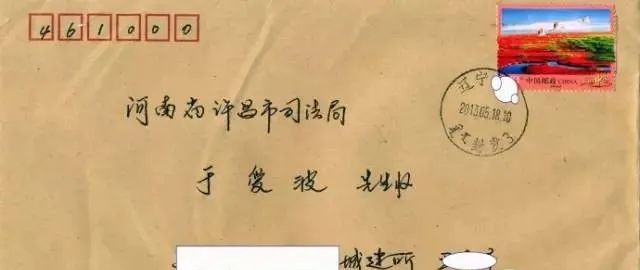 461000
中国邮政 CHINA
辽宁
2013.05.18.10
河南省许昌市司法局
于爱波 先生收
城建所